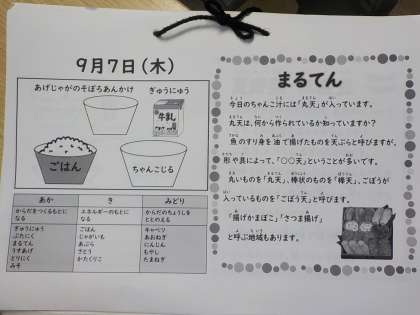 9月7日(木)
あげじゃがのそぼろあんかけ
ぎゅうにゅう
牛乳
ごはん
ちゃんこじる
あか
き
みどり
からだをつくるもとに
なる
エネルギーのもとに
なる
からだのちょうしを
ととのえる
ぎゅうにゅう
ぶたにく
まるてん
うすあげ
とりにく
みそ
ごはん
じゃがいも
あぶら
さとう
かたくりこ
キャベツ
あおねぎ
にんじん
もやし
たまねぎ
まるてん
今日のちゃんこ汁には「丸天」が入っています。
丸天は、何から作られているか知っていますか?
魚のすり身を油で揚げたものを天ぷらと呼びますが、
形や具によって、「○○天」ということが多いです。
丸いものを「丸天」、棒状のものを「棒天」、ごぼうが
入っているものを「ごぼう天」と呼びます。
「揚げかまぼこ」「さつま揚げ」
と呼ぶ地域もあります。